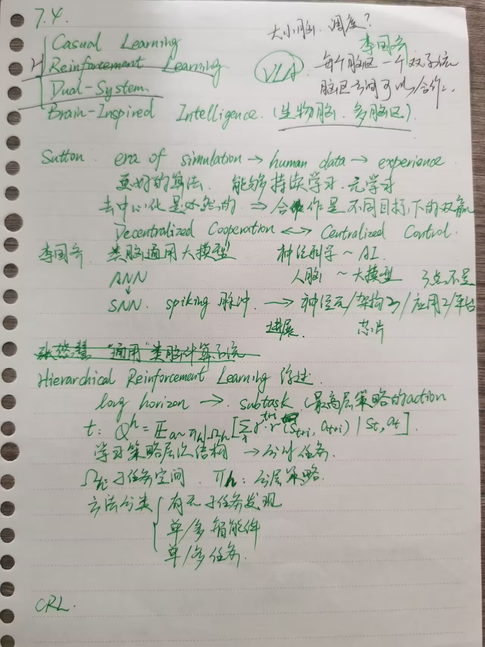 7.4.
大小脑, 调度?
Casual Learning
李国齐
Reinforcement Learning
VLA
每个脑区一个双系统
Dual-System.
脑区之间可以合作
Brain-Inspired Intelligence. (生物脑, 多脑区)
Sutton. era of simulation → human data → experience
更好的算法. 能够持续学习. 元学习
去中心化是必然的 → 合作是不同目标下的双赢
Decentralized Cooperation ↔ Centralized Control.
李国齐. 类脑通用大模型 神经科学 ~ AI.
ANN 人脑 ~ 大模型
SNN. spiking 脉冲. → 神经元/架构/应用/平台
进展. 芯片
"通用"类脑计算系统
Hierarchical Reinforcement Learning 综述.
long horizon → subtask (最高层策略的action
t: Q^h = E a~π_h|Ω_h [Σ γ^{t+i} r(s_{t+i}, a_{t+i}) | s_t, a_t].
学习策略层次结构 → 分解任务.
Ω_h: 子任务空间. π_h: 分层策略.
方法分类 { 有无子任务发现
单/多智能体
单/多任务.
CRL.